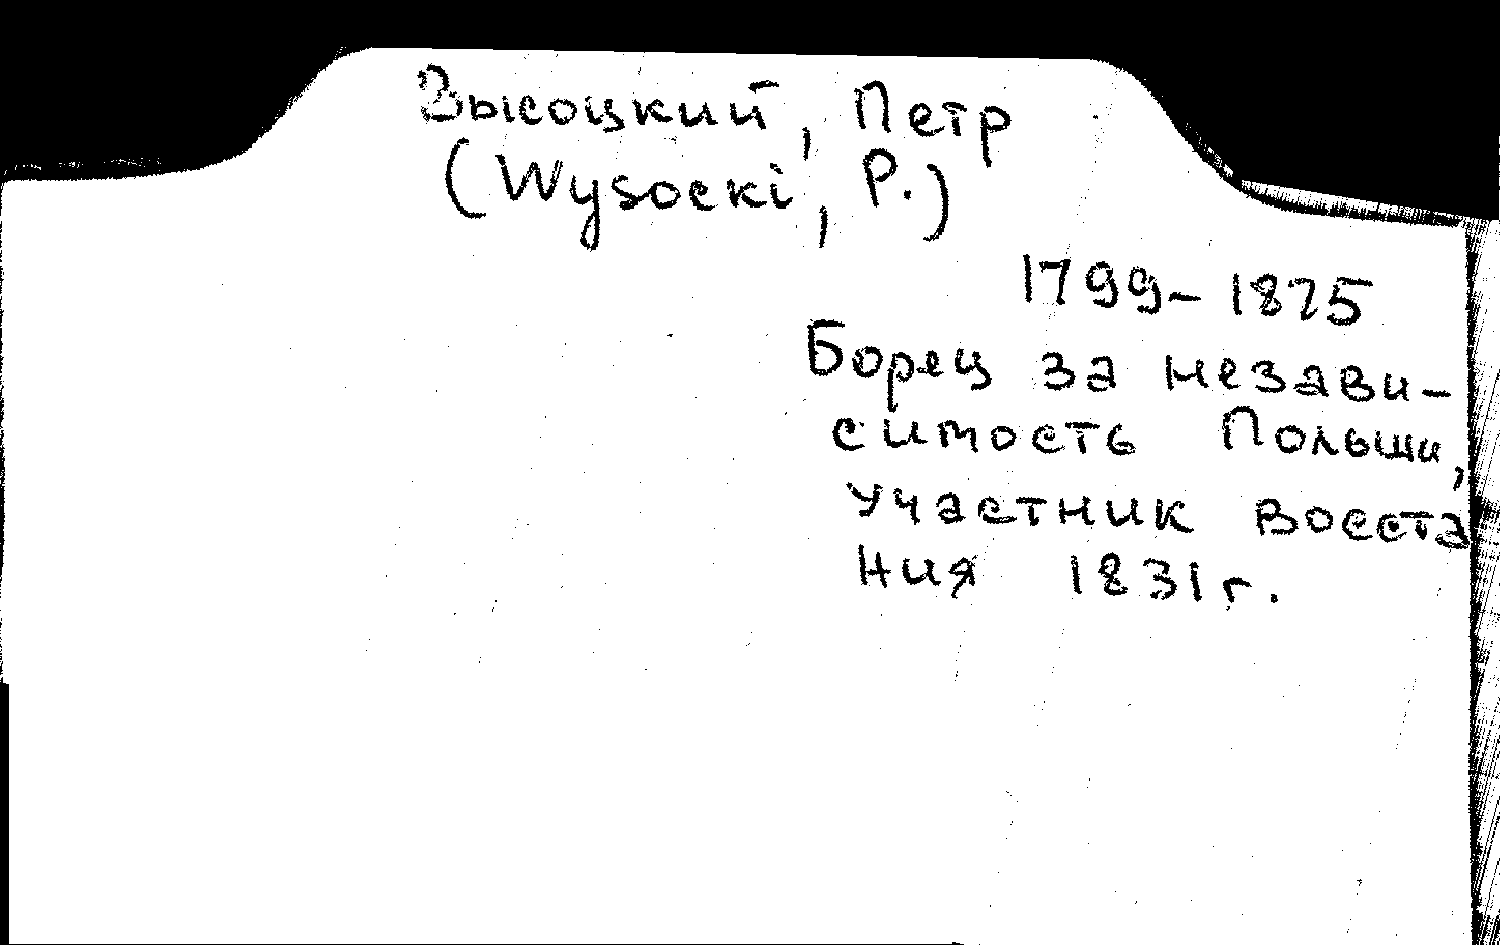 Высоцкий, Петр
(Wysocki, P.)
1799-1875
Борец за незави-
симость Польши,
участник восста
ния 1831г.